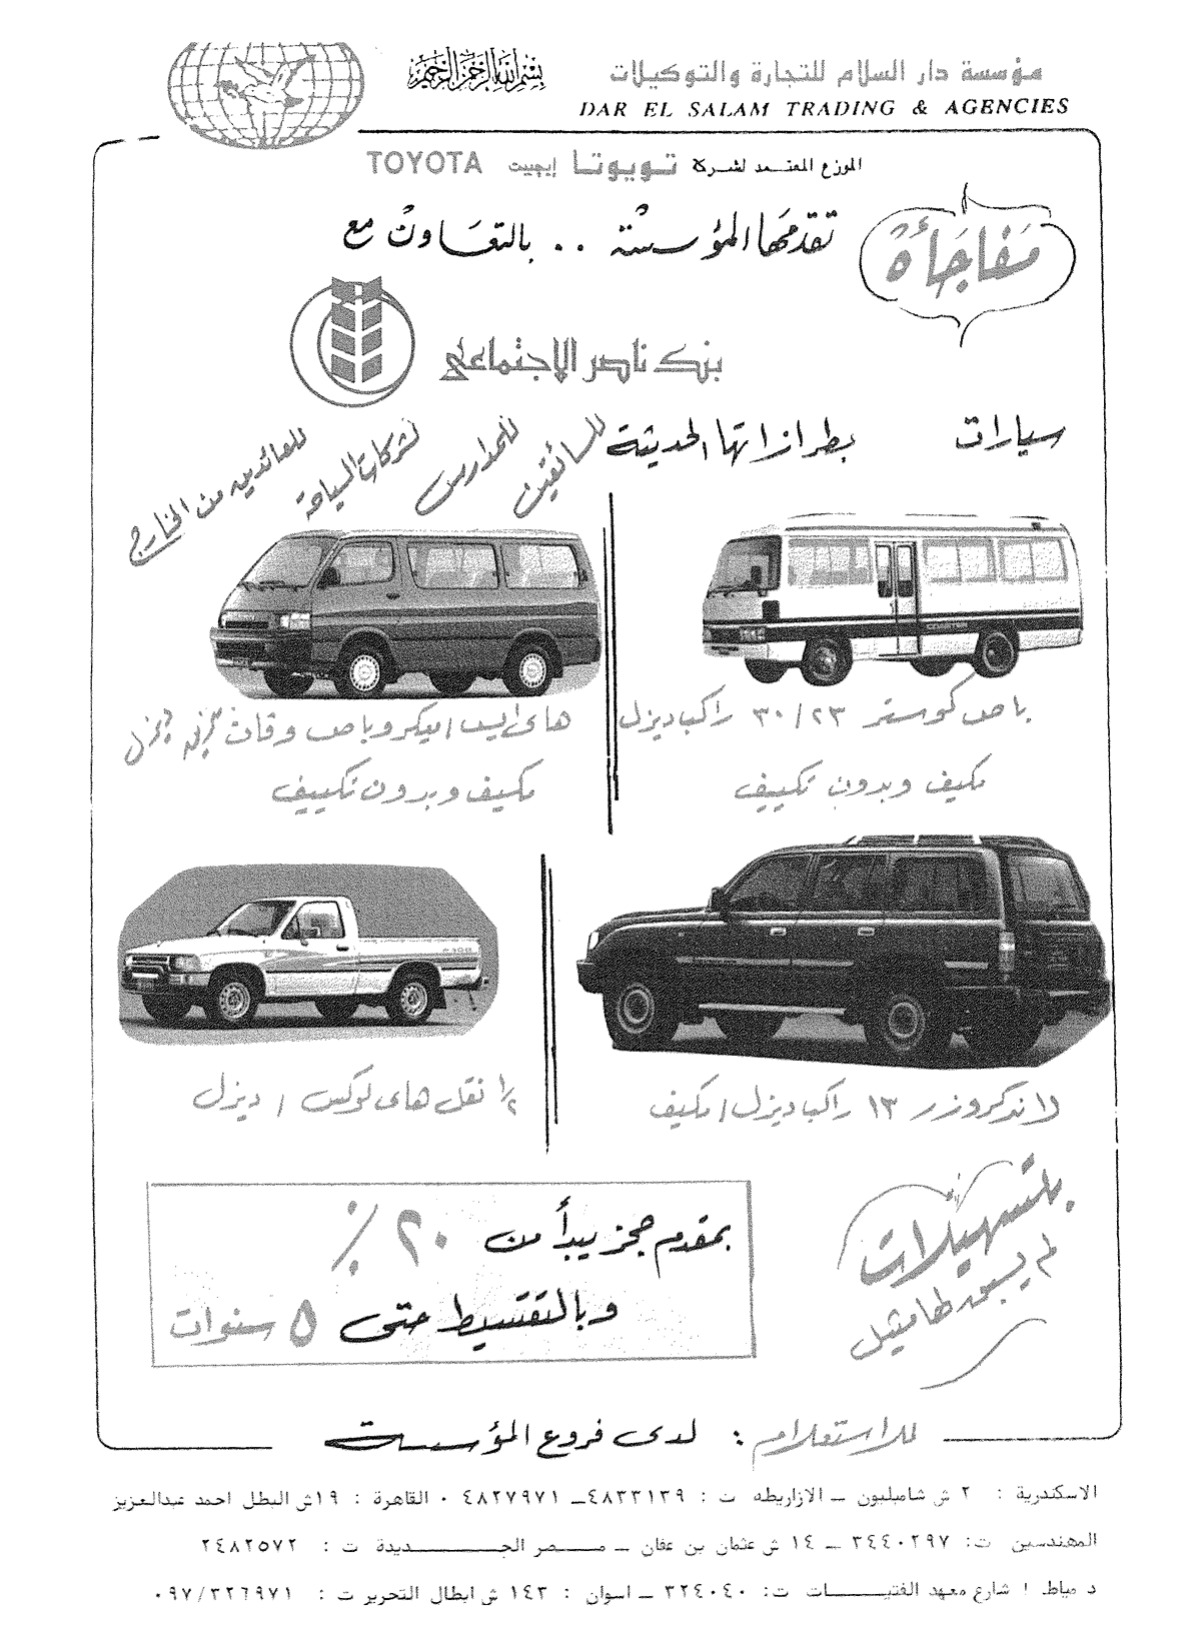 بسم الله الرحمن الرحيم
مؤسسة دار السلام للتجارة والتوكيلات
DAR EL SALAM TRADING & AGENCIES
الموزع المعتمد لشركة تويوتا إيجيبت TOYOTA
مفاجأة
تقدمها المؤسسة .. بالتعاون مع
بنك ناصر الاجتماعي
سيارات بطرازاتها الحديثة
للسائقين
للمدارس
لشركات السياحة
للعائدين من الخارج
COASTER
باص كوستر ٣٠/٢٣ راكب ديزل
مكيف وبدون تكييف
هاى ايس / ميكروباص وفان
مكيف وبدون تكييف
لاندكروزر ١٣ راكب ديزل / مكيف
١/٢ نقل هاى لوكس / ديزل
بتسهيلات
لم يسبق لها مثيل
بمقدم حجز يبدأ من ٢٠٪
وبالتقسيط حتى ٥ سنوات
للاستعلام : لدى فروع المؤسسة
الاسكندرية : ٢ ش شامبليون ــ الازاريطه ت : ٤٨٣٣١٣٩ــ ٤٨٢٧٩٧١ ٠ القاهرة : ١٩ش البطل احمد عبدالعزيز
المهندسين ت: ٣٤٤٠٢٩٧ ــ ١٤ ش عثمان بن عفان ــ مصر الجديدة ت : ٢٤٨٢٥٧٢
دمياط ١ شارع معهد الفتيات ت: ٣٢٤٠٤٠ ــ اسوان : ١٤٣ ش ابطال التحرير ت : ٠٩٧/٣٢٦٩٧١